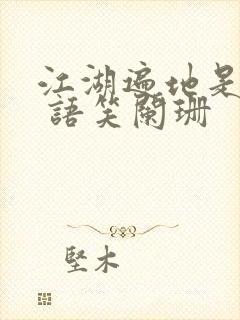 江湖遍地是
語笑闌珊
堅木